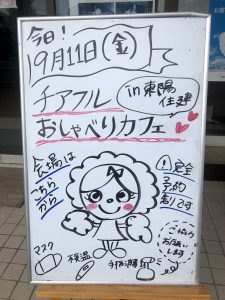 今日!
9月11日(金)
チアフル
in東陽
住建
おしゃべりカフェ
会場は
こちら
から
完全
予約
制です
ご協力
お願い
します
マスク
検温
手指消毒